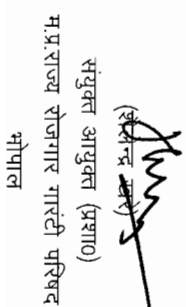 संयुक्त आयुक्त (प्रशा0)
म.प्र.राज्य रोजगार गारंटी परिषद
भोपाल